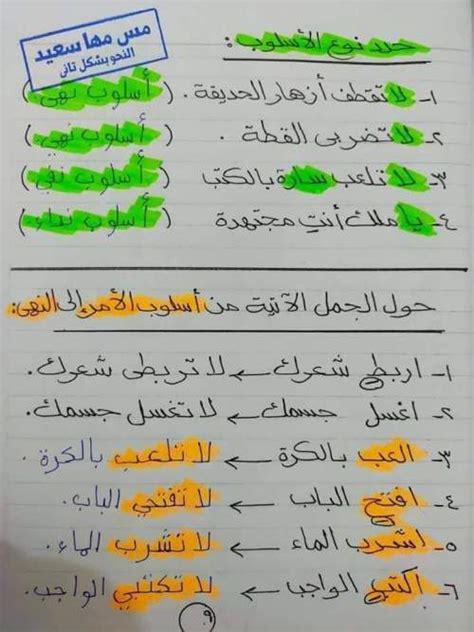 مس مها سعيد
النحو بشكل تانى
حدد نوع الأسلوب:
١- لا تقطف أزهار الحديقة. (أسلوب نهى)
٢- لا تضربى القطة. (أسلوب نهي)
٣- لا تلعب سارة بالكتب (أسلوب نفي)
٤- يا ملك أنتِ مجتهدة (أسلوب نداء)
حول الجمل الآتية من أسلوب الأمر إلى النهى:
١- اربطي شعرك ← لا تربطى شعرك.
٢- اغسل جسمك ← لا تغسل جسمك.
٣- العب بالكرة ← لا تلعب بالكرة.
٤- افتحي الباب ← لا تفتحي الباب.
٥- اشرب الماء ← لا تشرب الماء.
٦- اكتبي الواجب ← لا تكتبي الواجب.
٩